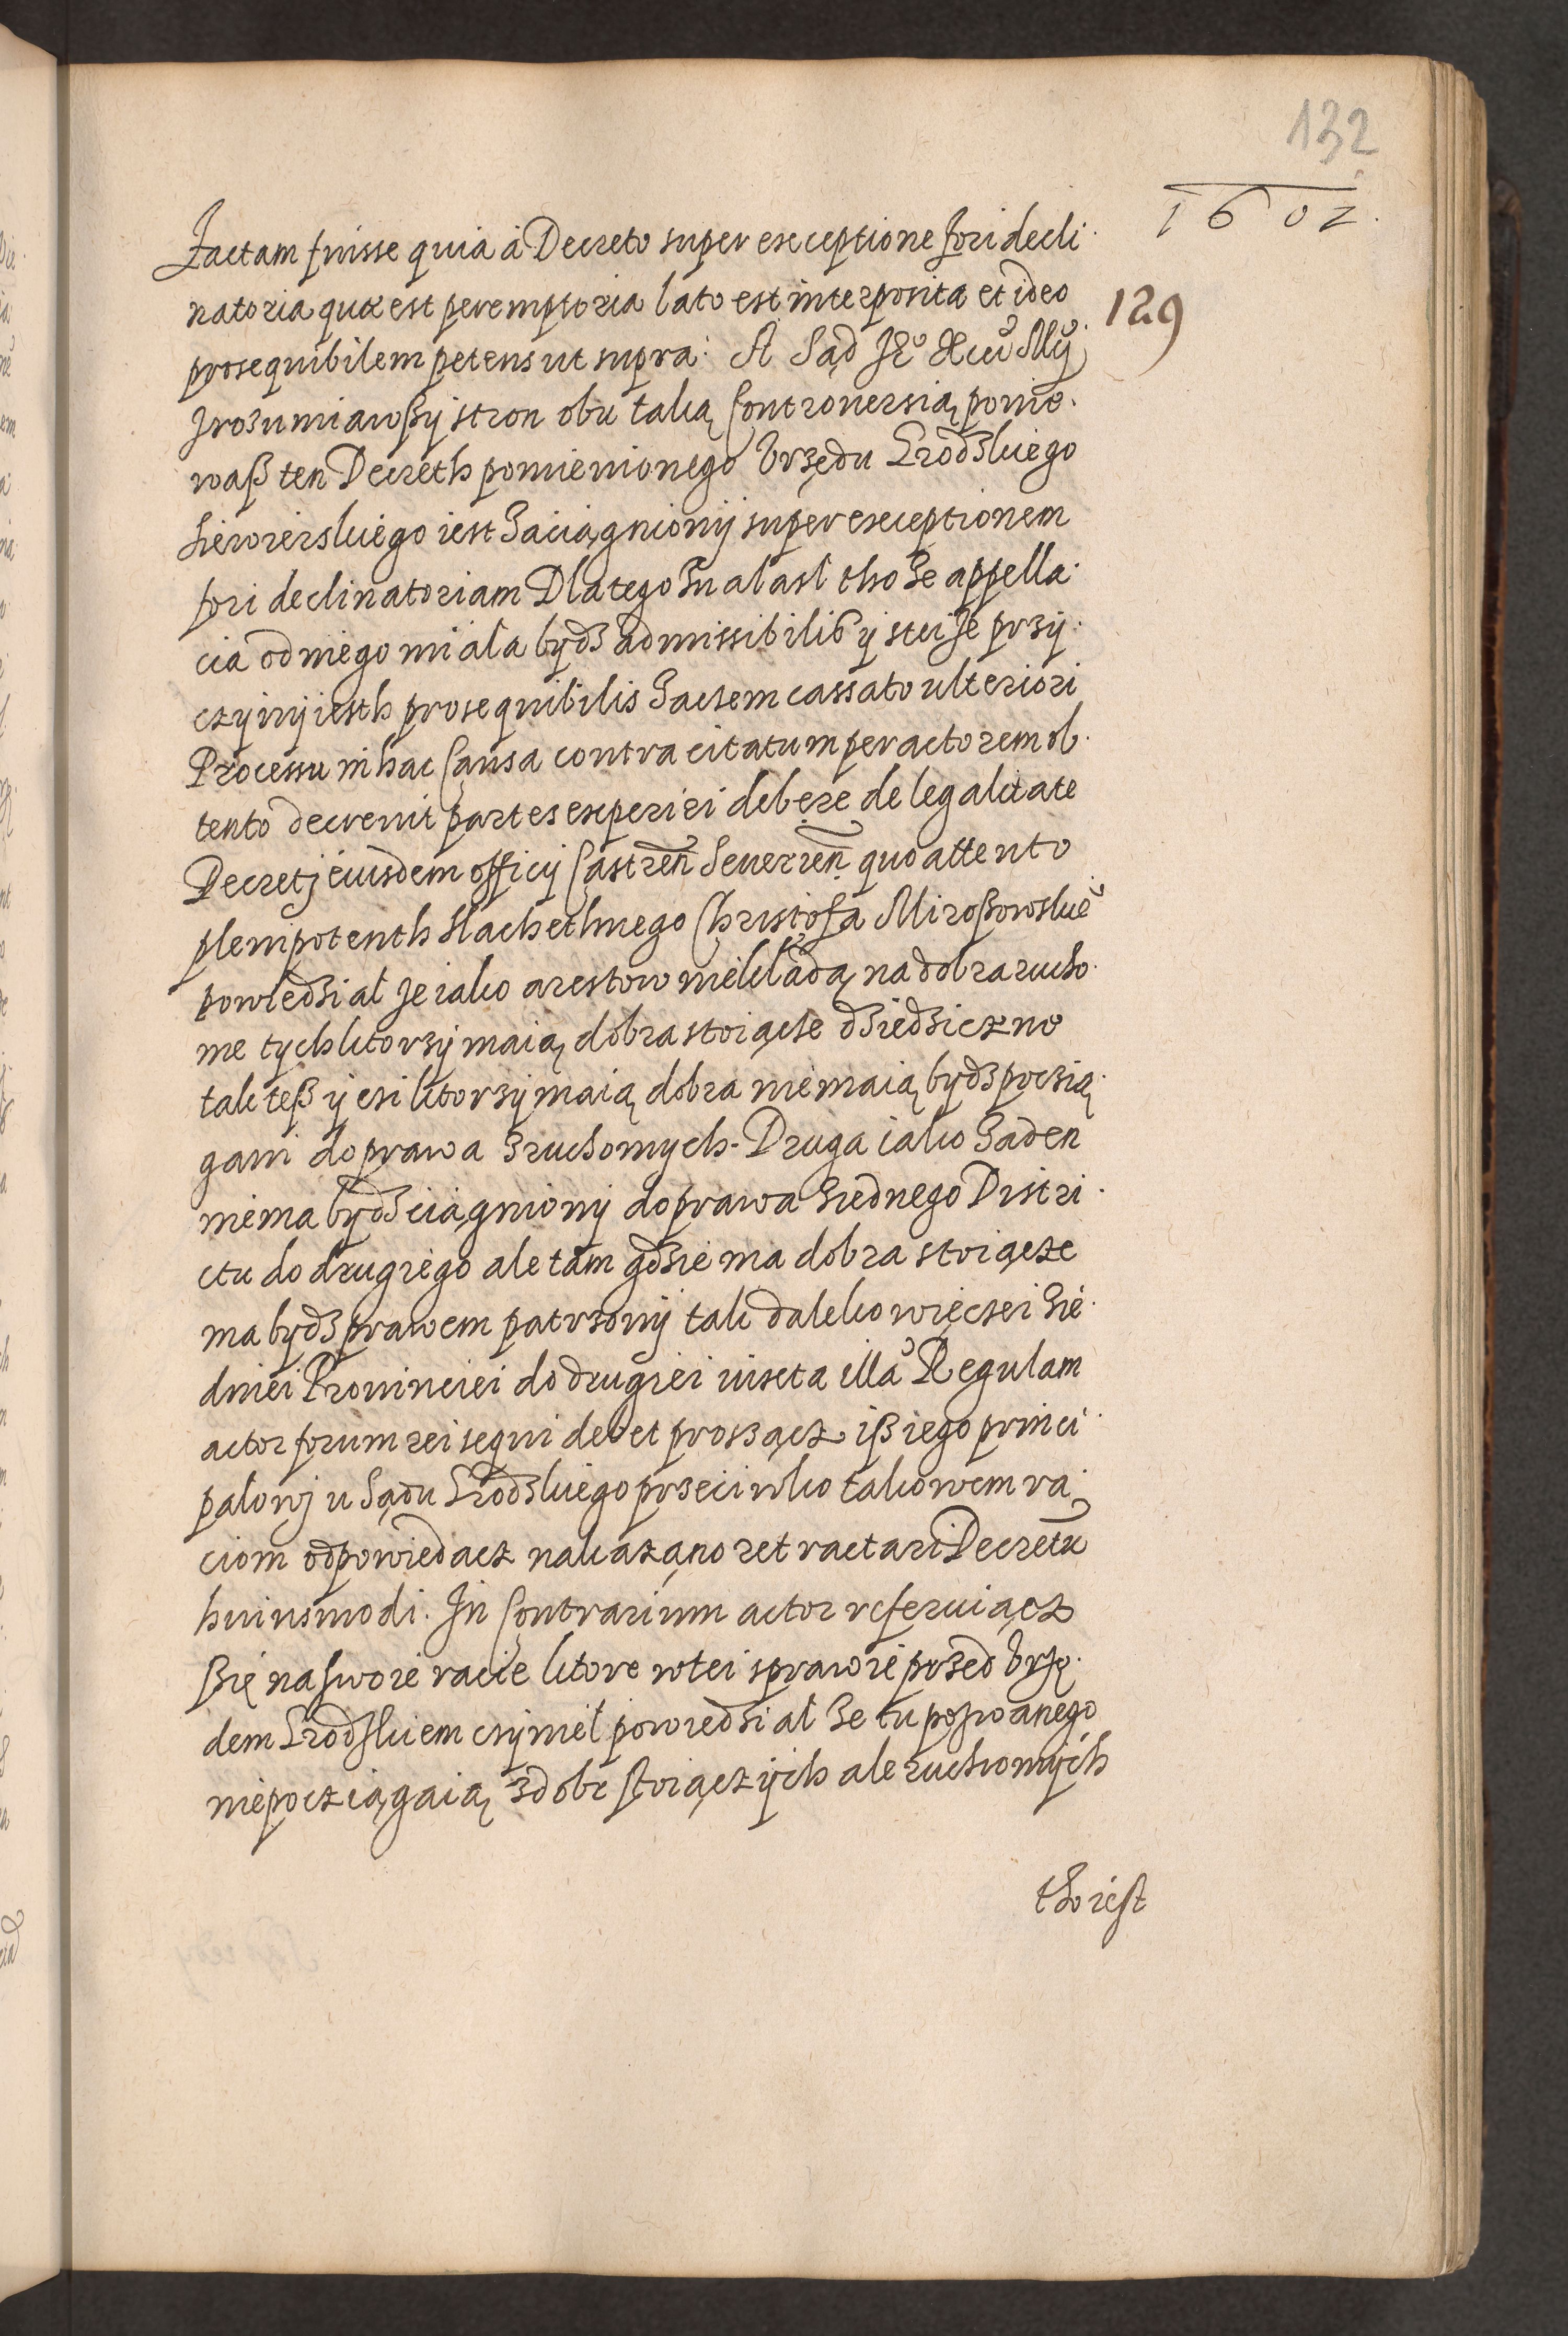 132
1602.
129
Factam fuisse quia à Decreto super exceptione fori decli-
natoria quæ est peremptoria lato est interposita et ideo
prosequibilem petens ut supra. A Sąd Je° Xcey Mcy
zrozumiawszy stron obu taką Controversią ponie-
waß ten Decreth pomienionego Vrzędu Grodzkiego
Siewierskiego iest zaciągniony super exceptionem
fori declinatoriam Dlatego znalasł tho że appella-
cia odniego miała bydź admissibilis y stei że przy-
czyny iesth prosequibilis zaczem cassato ulteriori
Processu in hac Causa contra citatum per actorem ob-
tento decrevit partes experiri debere de legalitate
Decretj eiusdem officij Castren Severien quo attento
plenipotenth slachethnego Christofa Miroßowskie°
powiedział że iako arestow nie kładą na dobra rucho-
me tych ktorzy maią dobra stoiącze dziedziczne
tak teß y czi ktorzy maią dobra nie maią bydź pocią-
gani do prawa z ruchomych. Druga iako żaden
nie ma bydź ciągniony do prawa ziednego Distri-
ctu do drugiego ale tam gdzie ma dobra stoiącze
ma bydź prawem patrzony tak daleko więczei zie-
dniei Provinciei do drugiei iuxta illã Regulam
actor forum rei sequi debet prosząc iß iego princi-
palowj u Sądu Grodzkiego przeciwko takowem ra-
ciom odpowiedacz nakazano retractari Decretũ
huiusmodi. In Contrarium actor referuiącz
się na swoie racie ktore wtei sprawie przed Vrzę-
dem Grodzkiem czynieł powiedział że tu pozwanego
nie pocziągaią zdobr stoiączych ale ruchomych
tho iest